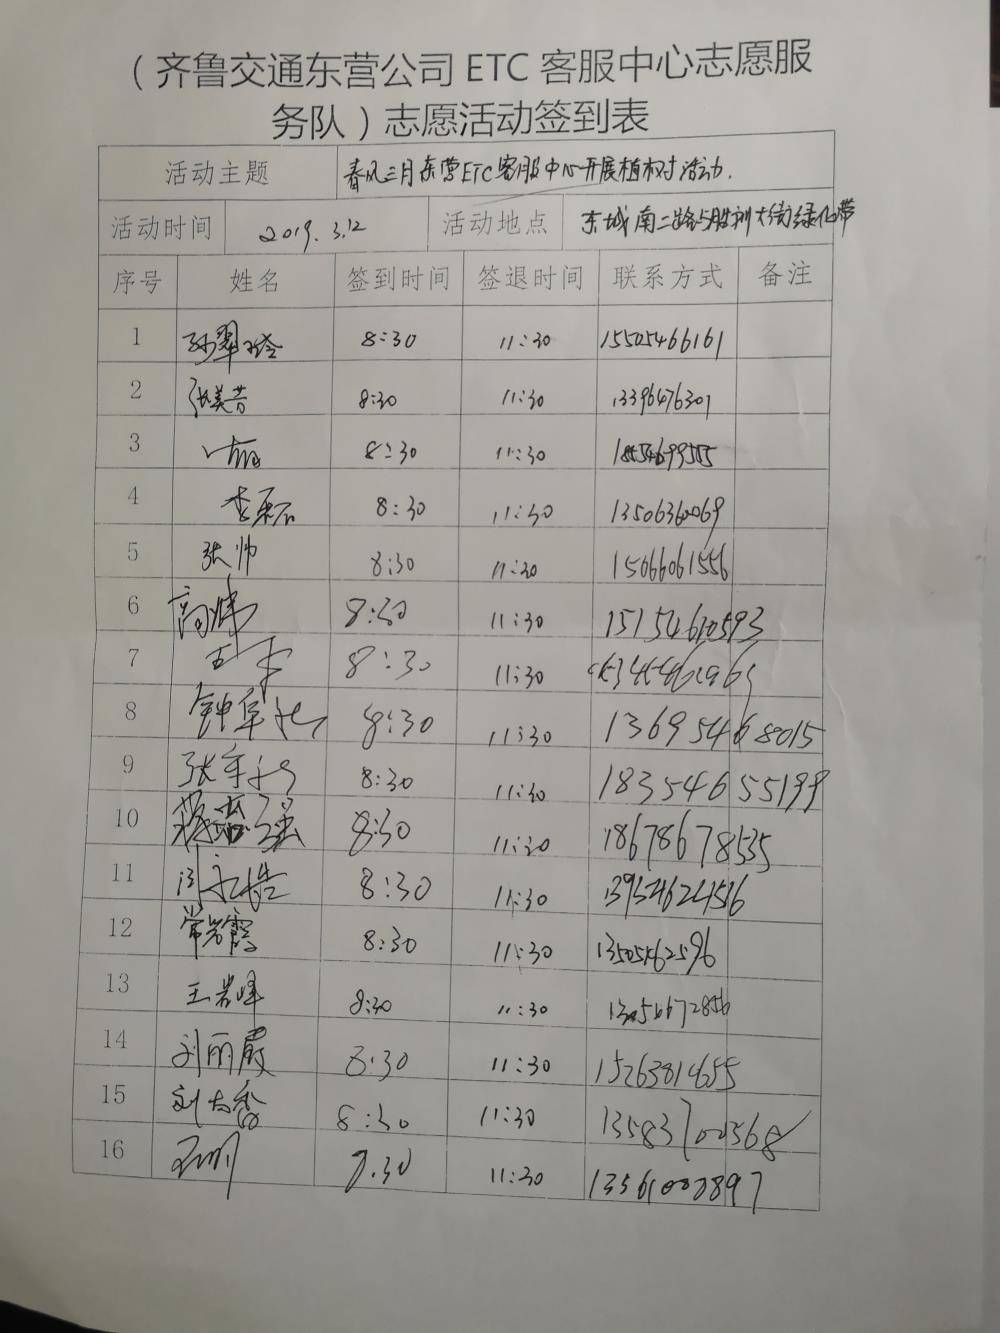 （齐鲁交通东营公司 ETC 客服中心志愿服
务队）志愿活动签到表
活动主题 春风三月东营ETC客服中心开展植树活动.
活动时间 2019.3.12 活动地点 东城南二路与胜利大街绿化带
序号 姓名 签到时间 签退时间 联系方式 备注
1 孙翠玲 8:30 11:30 15505466161
2 张美芳 8:30 11:30 13396476301
3 8:30 11:30 18554699555
4 李磊 8:30 11:30 13506360069
5 张帅 8:30 11:30 15066061556
6 高炜 8:30 11:30 15154610593
7 8:30 11:30
8 8:30 11:30 13695468015
9 8:30 11:30 18354655199
10 8:30 11:30 18678678535
11 8:30 11:30
12 常岩霞 8:30 11:30
13 王岩峰 8:30 11:30
14 刘丽霞 8:30 11:30 15263814655
15 刘大香 8:30 11:30 13583700568
16 8:30 11:30